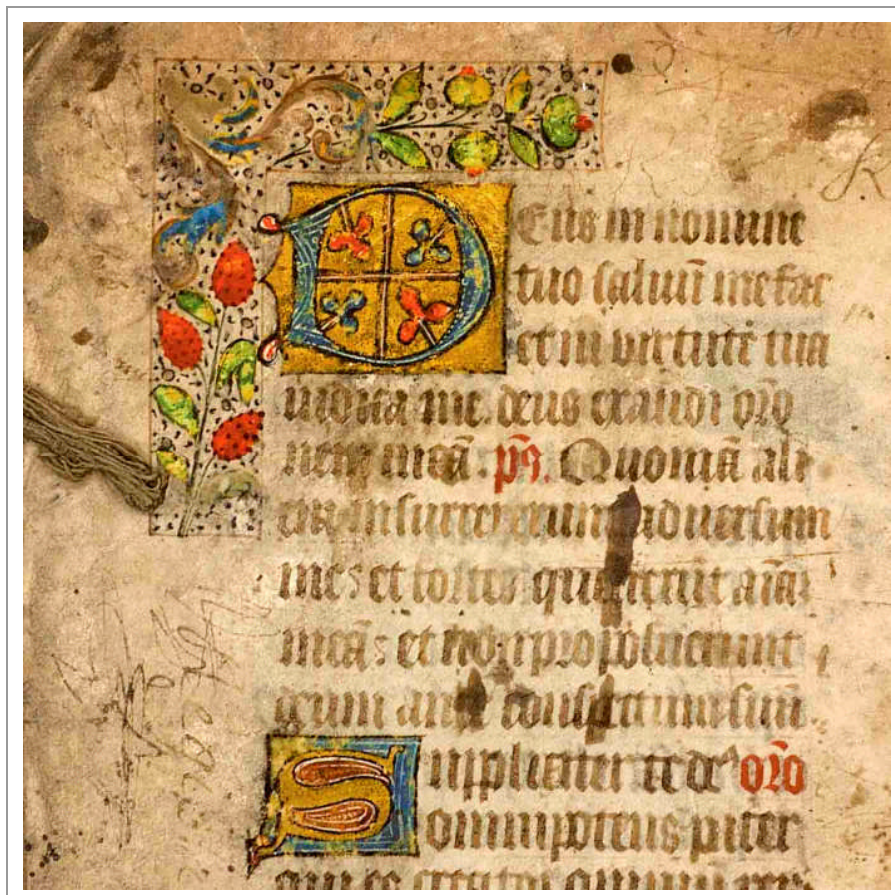 Deus in nomine
tuo saluū me fac
et in virtute tua
iudica me. deus exaudi orō
nem meā. p̄s. Quoniā ali
eni insurrexerunt adversum
me: et fortes quesierūt aīam
meā: et non proposuerunt
deum ante conspectum suū
Suppliciter te de orō
omnipotens pater
qui es creator omnium